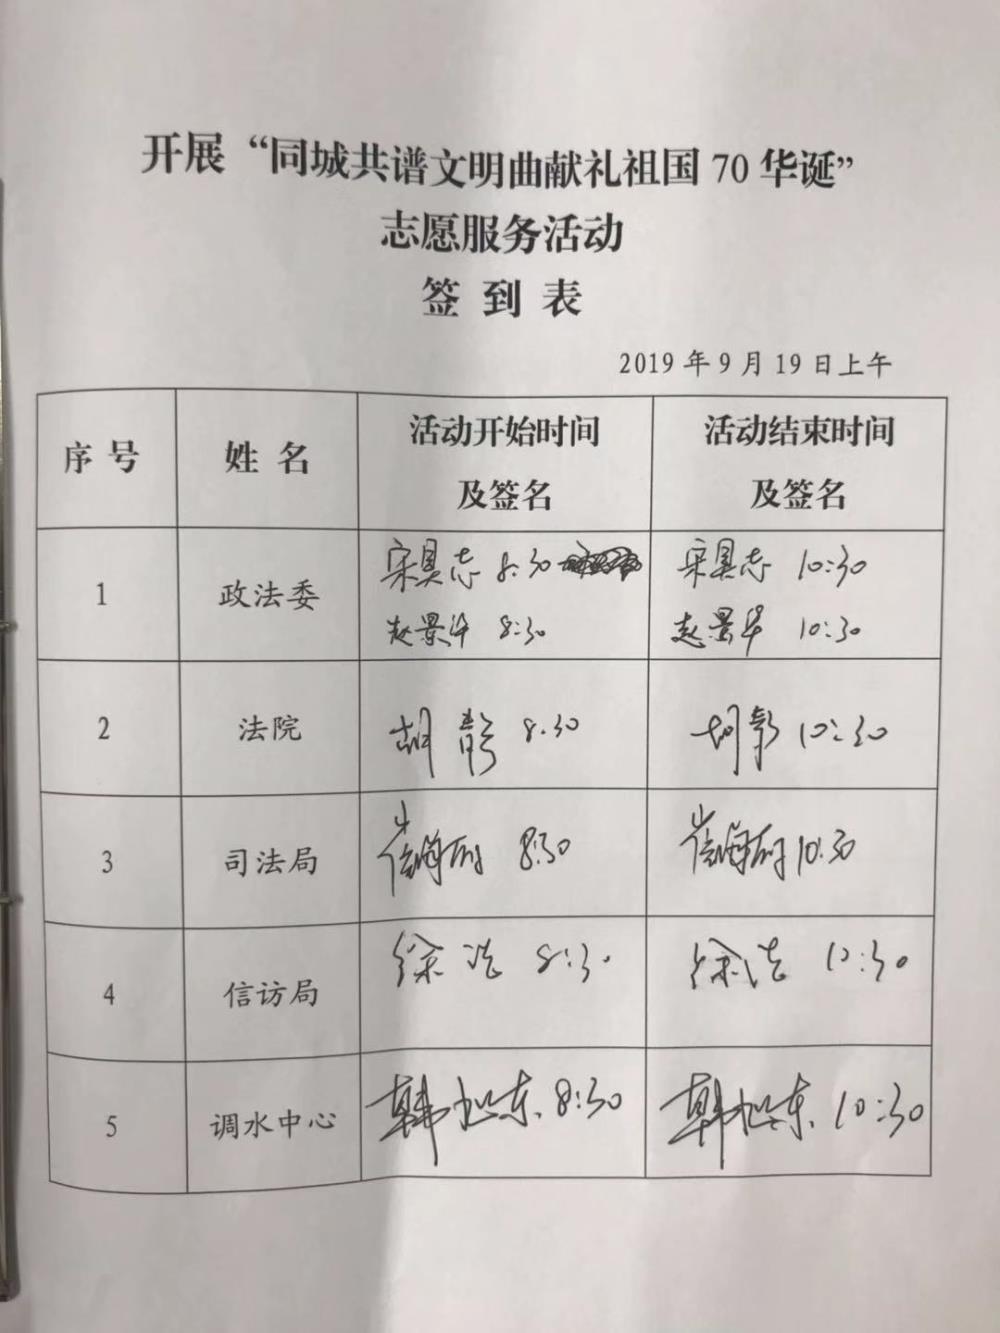 开展“同城共谱文明曲献礼祖国 70 华诞”
志愿服务活动
签 到 表
2019 年 9 月 19 日上午
序 号
姓 名
活动开始时间
及签名
活动结束时间
及签名
1
政法委
宋具志 8:30
赵景华 8:30
宋具志 10:30
赵景华 10:30
2
法院
胡彰 8:30
胡彰 10:30
3
司法局
崔海 8:30
崔海 10:30
4
信访局
徐浩 8:30
徐浩 10:30
5
调水中心
韩旭东 8:30
韩旭东 10:30